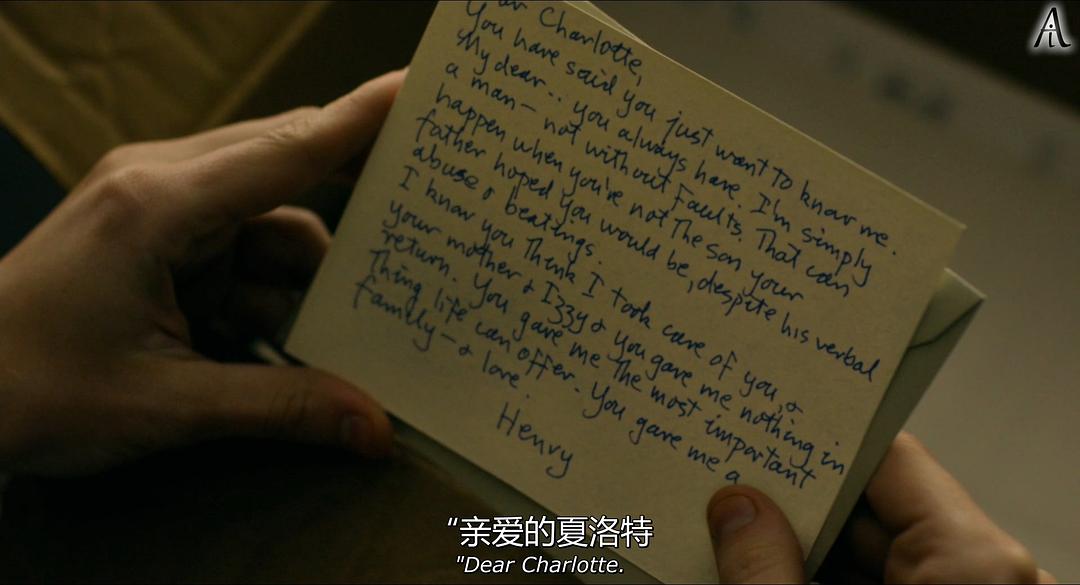 ar Charlotte,
You have said you just want to know me.
My dear.. you always have. I'm simply
a man— not without Faults. That can
happen when you're not The son your
father hoped you would be, despite his verbal
abuse & beatings.
I know you Think I took care of you, &
your mother & Izzy & you gave me nothing in
return. You gave me The most important
Thing life can offer. You gave me a
family— & love.
Henry
“亲爱的夏洛特
"Dear Charlotte.